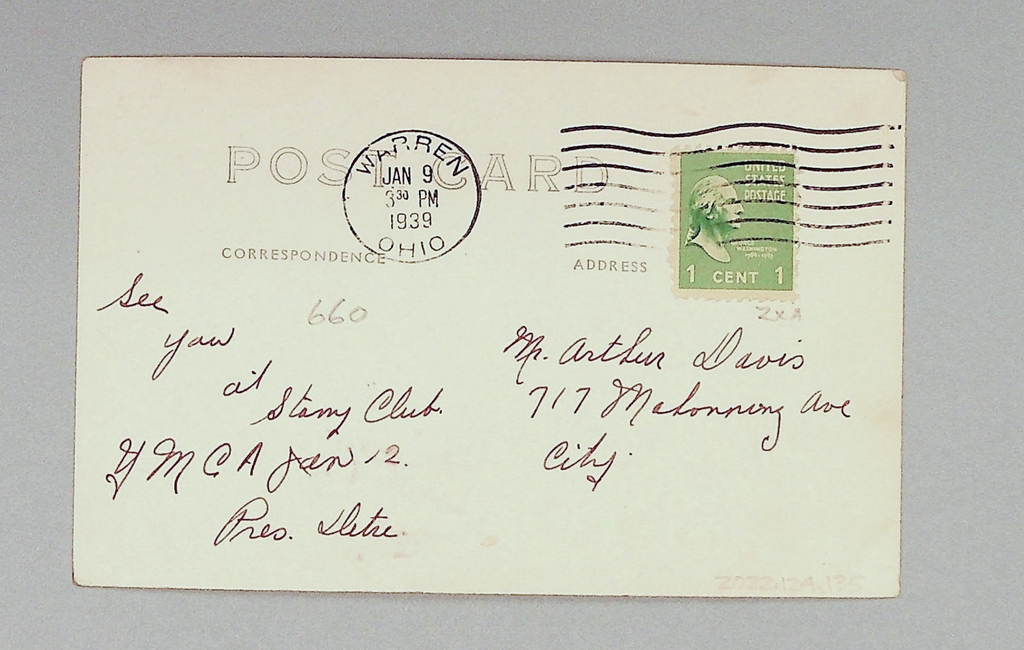 POST CARD
WARREN
JAN 9
3 30 PM
1939
OHIO
UNITED
STATES
POSTAGE
WASHINGTON
1 CENT 1
CORRESPONDENCE
ADDRESS
See
you
at
Stamp Club.
YMCA Jan 12.
Pres. Detre
660
ZXA
Mr. Arthur Davis
717 Mahonning Ave
City.
2022.124.135